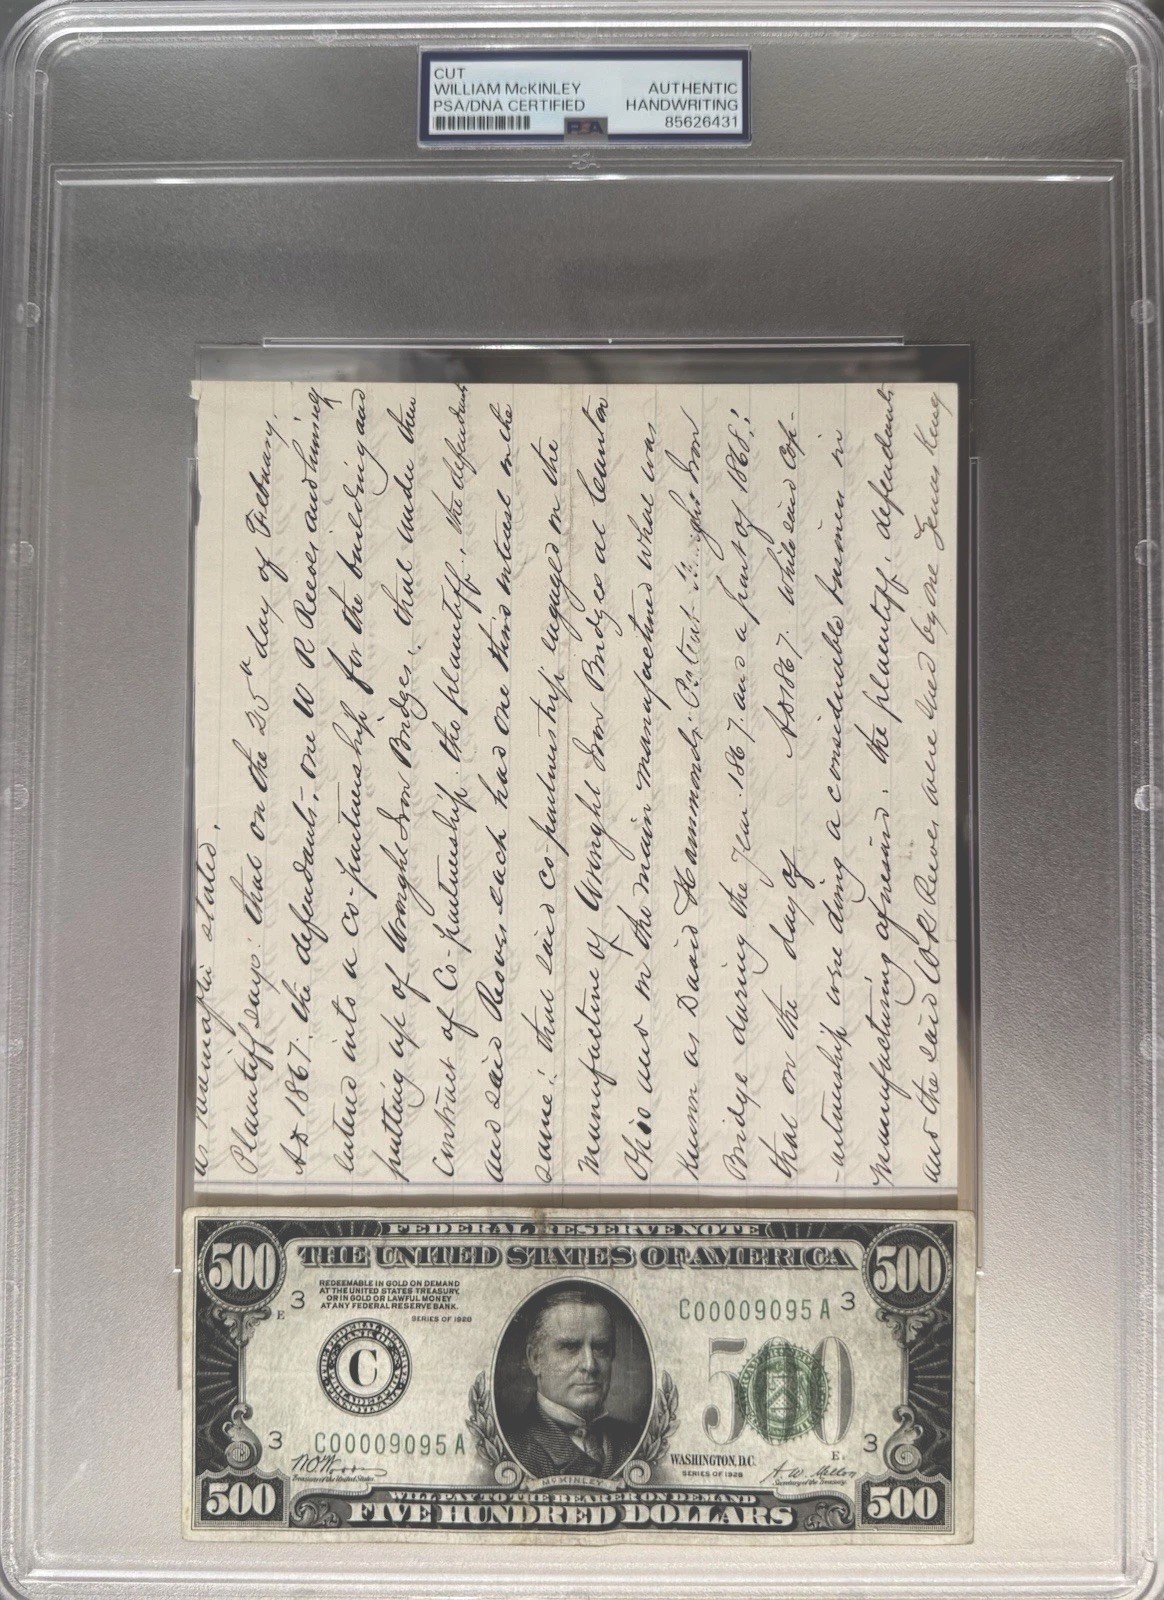 CUT
WILLIAM McKINLEY
PSA/DNA CERTIFIED
AUTHENTIC
HANDWRITING
85626431
PSA
PSA
as stated,
Plaintiff says: that on the 25" day of February,
AD 1867: the defendants, one W R Reeves and himself
entered into a co-partnership for the building and
putting up of Wrought Iron Bridges: that under their
Contract of Co-partnership the plaintiff, the defendants
and said Reeves each had one third interest in the
same: that said co-partnership engaged in the
manufacture of Wrought Iron Bridges at Canton
Ohio and in the main manufactured what was
known as David Hammonds Patent Iron
Bridge during the Year 1867. and a part of 1868:
that on the day of AD 1867. while said Cop-
-artnership were doing a considerable business in
manufacturing aforesaid. the plaintiff, defendants
and the said W R Reeves were sued by one Zenas King
FEDERAL RESERVE NOTE
THE UNITED STATES OF AMERICA
500
500
REDEEMABLE IN GOLD ON DEMAND
AT THE UNITED STATES TREASURY,
OR IN GOLD OR LAWFUL MONEY
AT ANY FEDERAL RESERVE BANK.
SERIES OF 1928
E 3
C00009095A 3
THE FEDERAL RESERVE BANK OF
PHILADELPHIA
PENNSYLVANIA
C
500
3 C00009095A
WASHINGTON, D.C.
SERIES OF 1928
E.
3
Treasurer of the United States.
A. W. Mellon
Secretary of the Treasury.
McKINLEY
WILL PAY TO THE BEARER ON DEMAND
500
FIVE HUNDRED DOLLARS
500